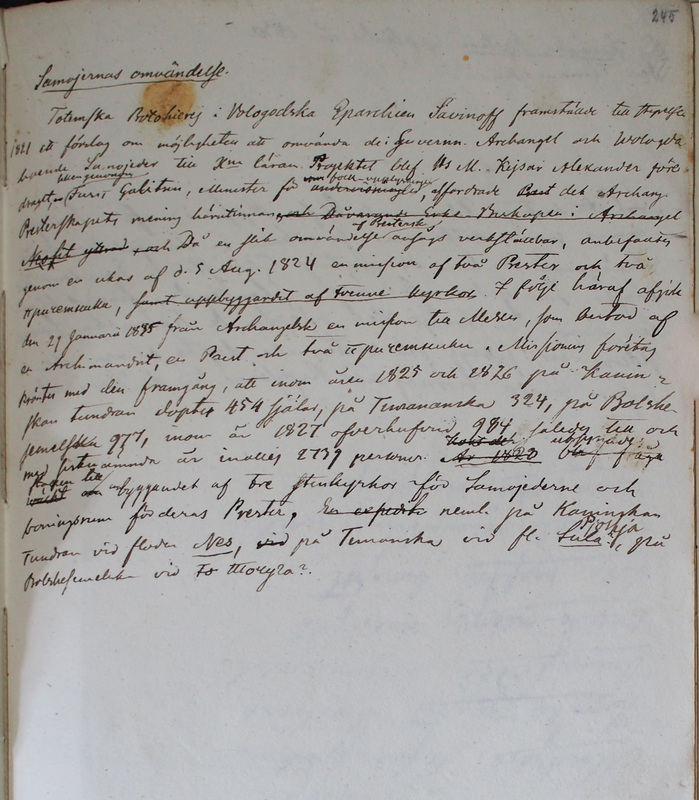 245
Samojernas omvändelse.
Totemska Protohierej i Vologodska Eparchien Savinoff framställde till Styrelse
1821 ett förslag om möjligheten att omvända de i Guvernn. Archangel och Wologda
boende Samojeder till Xna läran. Projektet blef Hs M. Kejsar Alexander före
draget. Furst Galitsin, Minister för undervisningen, affordrade Prest det Archang.
Presterskapets mening härutinnan, och Dåvarande Erke Biskopen i Archangel
Neofit yttrad och Då en slik omvändelse ansågs verkställbar, anbefaldes
genom en ukas af d. 5 Aug. 1824 en mission af två Prester och två
причетника, samt uppbyggandet af tvenne kyrkor. I följe häraf afgick
den 29 Januarii 1825 från Archangelsk en mission till Mesen, som bestod af
en Archimandrit, en Prest och två причетники. Missionen företag
kröntes med den framgång, att inom åren 1825 och 1826 på Kanin-
skan tundran döptes 454 själar, på Timanska 324, på Bolshe-
semelska 977, inom år 1827 ofverhufvud 984 således till och
med sistnämnda år inalles 2739 personer. År 1820 blef fråga
byggandet af tre stenkyrkor för Samojederne och
boningsrum för deras Prester, nemli. på Kaninskan
Tundran vid floden Nes, vid på Timanska vid fl. Sula, på
Bolshesemelska vid